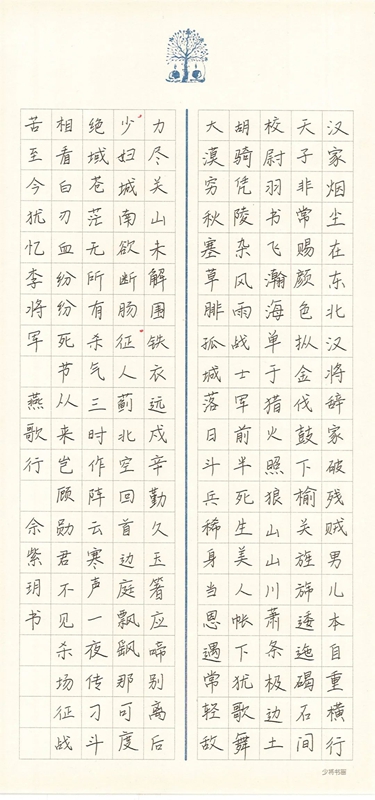 汉家烟尘在东北汉将辞家破残贼男儿本自重横行
天子非常赐颜色𪭢金伐鼓下榆关旌旆逶迤碣石间
校尉羽书飞瀚海单于猎火照狼山山川萧条极边土
胡骑凭陵杂风雨战士军前半死生美人帐下犹歌舞
大漠穷秋塞草腓孤城落日斗兵稀身当恩遇常轻敌
力尽关山未解围铁衣远戍辛勤久玉箸应啼别离后
少妇城南欲断肠征人蓟北空回首边庭飘飖那可度
绝域苍茫无所有杀气三时作阵云寒声一夜传刁斗
相看白刃血纷纷死节从来岂顾勋君不见杀场征战
苦至今犹忆李将军 燕歌行 佘紫玥书